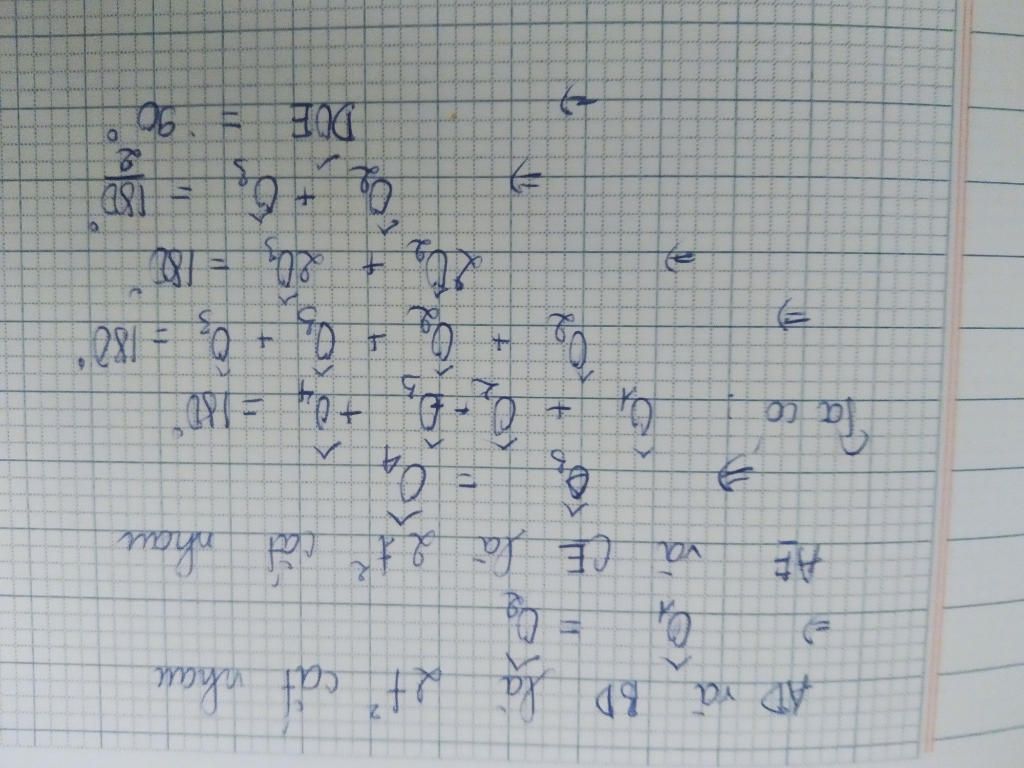 AD và BD là 2 t² cắt nhau
⇒ Ô₁ = Ô₂
AE và CE là 2 t² cắt nhau
⇒ Ô₃ = Ô₄
Ta có: Ô₁ + Ô₂ + Ô₃ + Ô₄ = 180°
⇒ Ô₂ + Ô₂ + Ô₃ + Ô₃ = 180°
⇒ 2Ô₂ + 2Ô₃ = 180°
⇒ Ô₂ + Ô₃ = 180°/2
⇒ DÔE = 90°